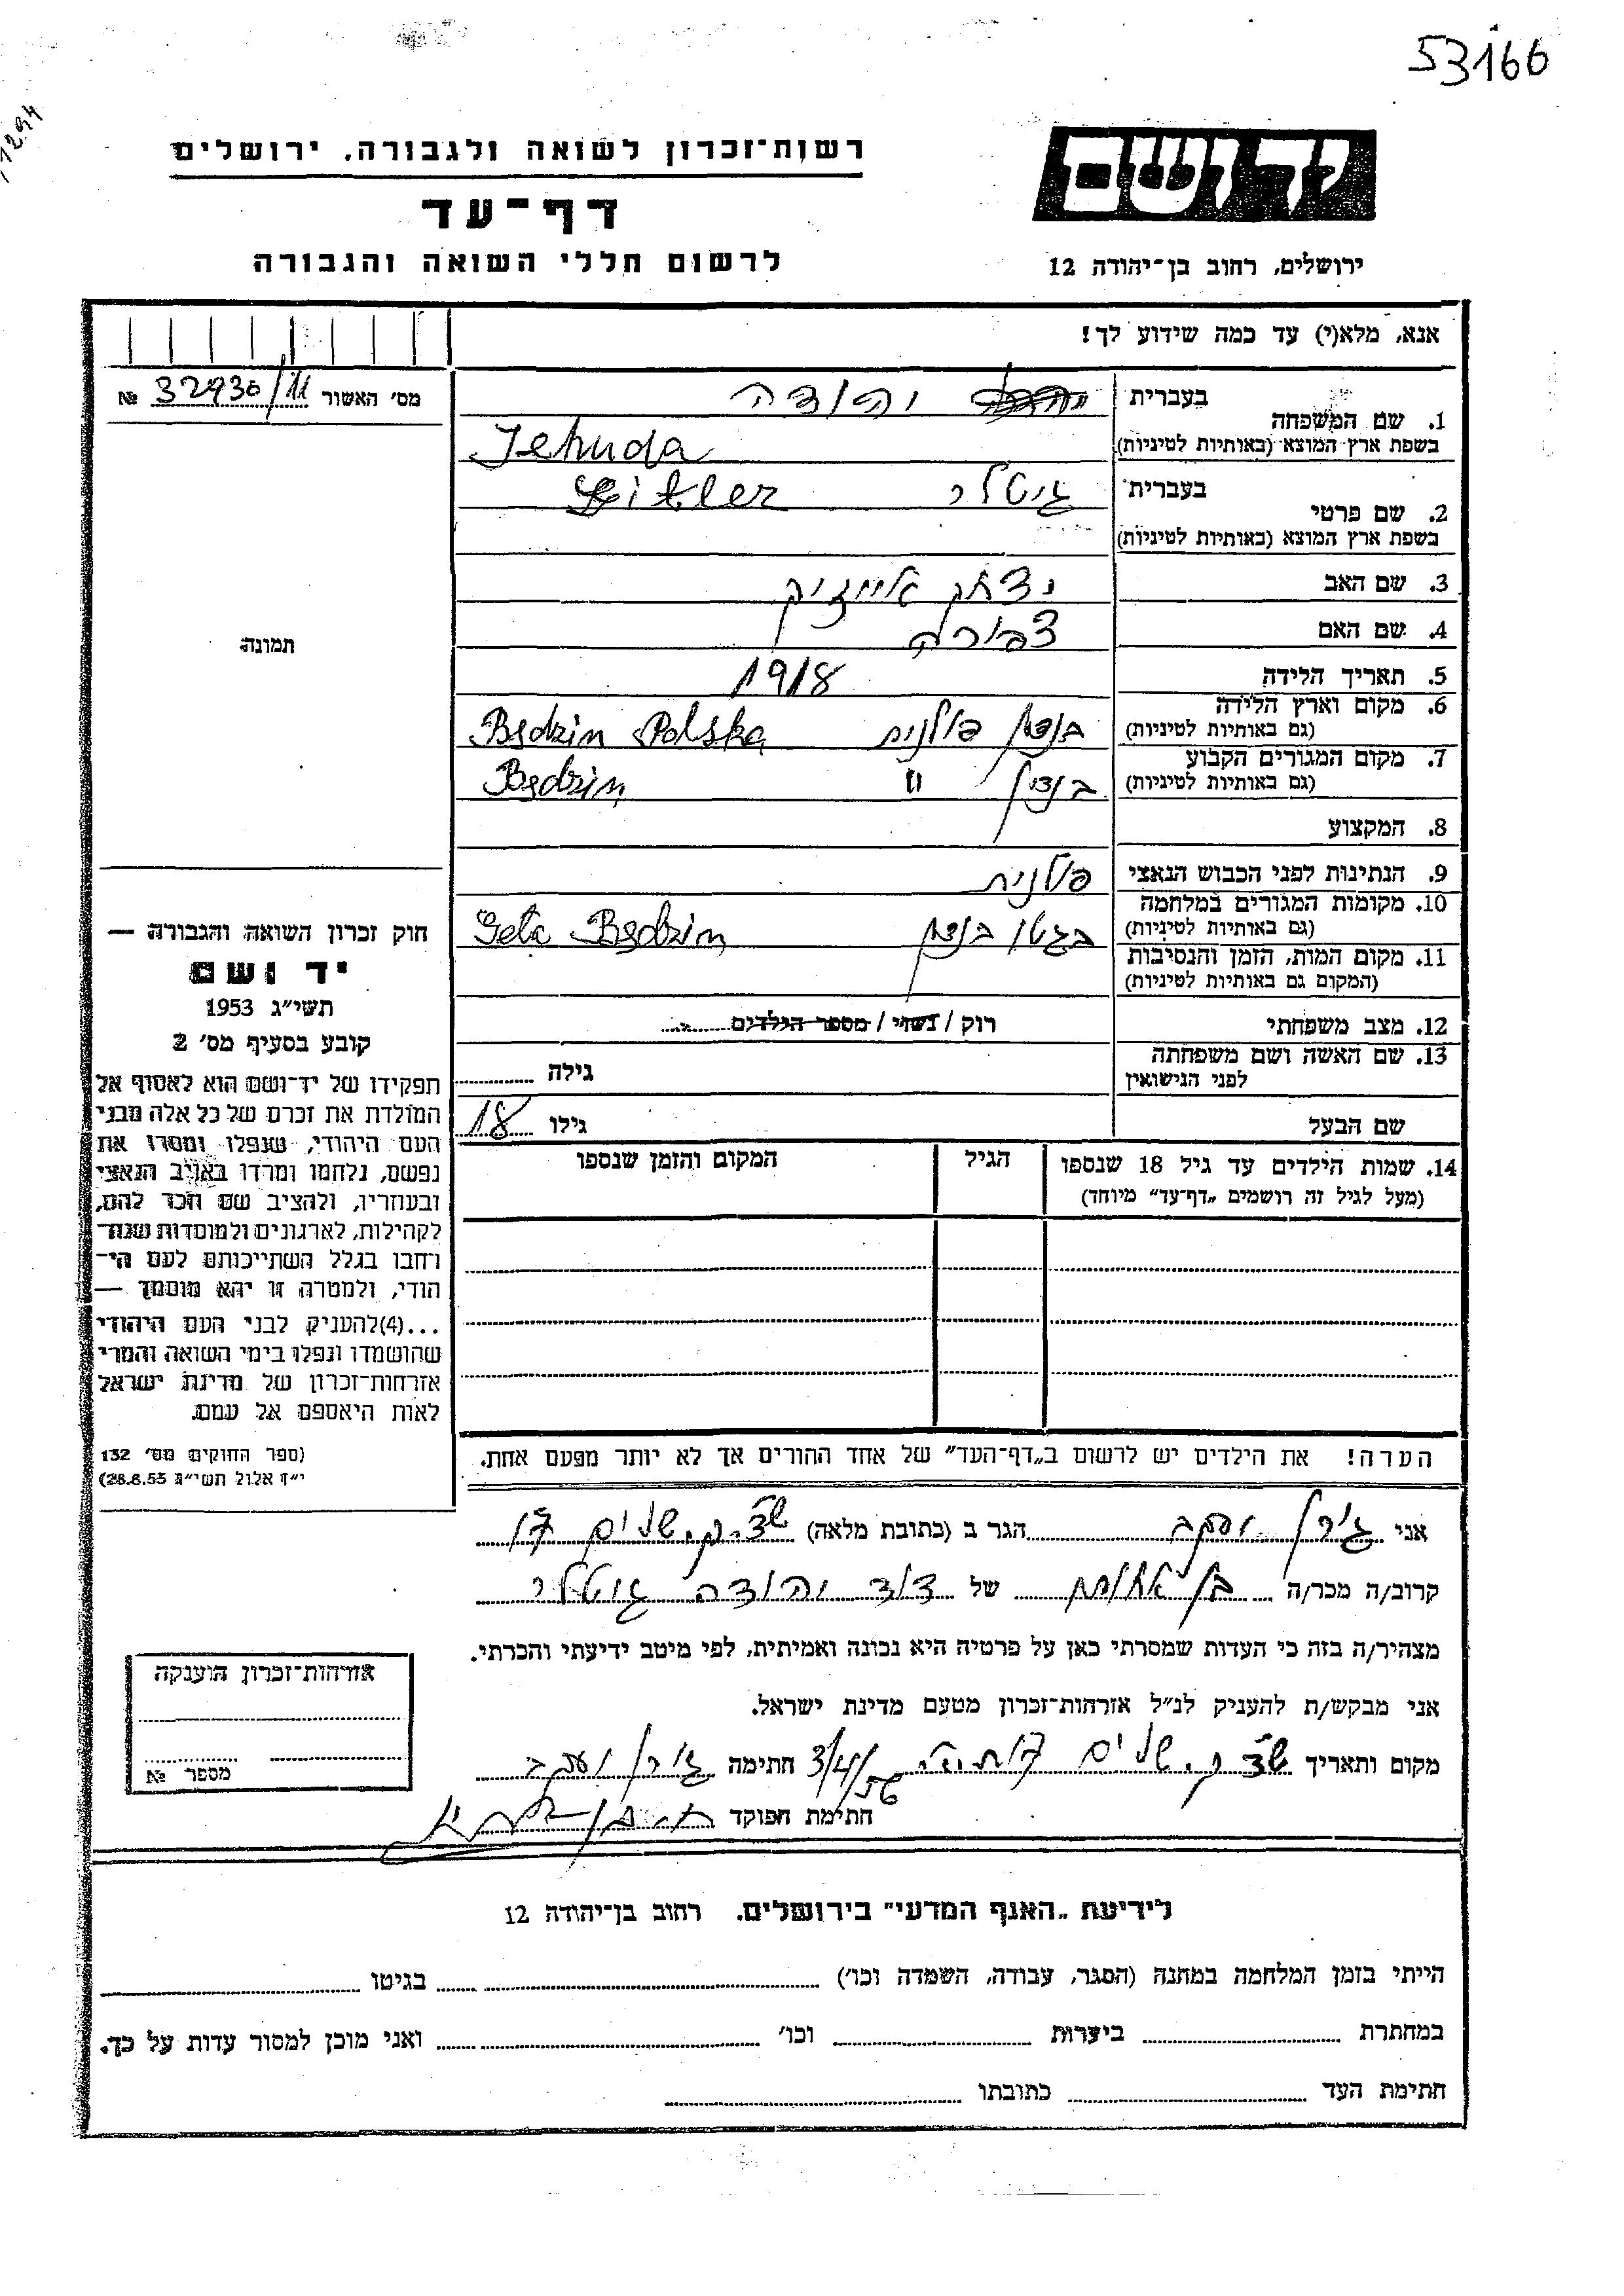 53166
1294
יד ושם
רשות־זכרון לשואה ולגבורה, ירושלים
דף־עד
ירושלים, רחוב בן־יהודה 12
לרשום חללי השואה והגבורה
אנא, מלא(י) עד כמה שידוע לך!
מס׳ האשור 32930/11 №
1. שם המשפחה
בעברית יהודה
בשפת ארץ המוצא (באותיות לטיניות) Jehuda
2. שם פרטי
בעברית גיטלר Gitler
בשפת ארץ המוצא (באותיות לטיניות)
3. שם האב יצחק אייזיק
4. שם האם דבורה
תמונה
5. תאריך הלידה 1918
6. מקום וארץ הלידה בנדין פולנית Będzin Polska
(גם באותיות לטיניות)
7. מקום המגורים הקבוע בנדין " Będzin
(גם באותיות לטיניות)
8. המקצוע
9. הנתינות לפני הכבוש הנאצי פולנית
10. מקומות המגורים במלחמה
(גם באותיות לטיניות) בגטו בנדין Geto Będzin
11. מקום המות, הזמן והנסיבות
(המקום גם באותיות לטיניות)
12. מצב משפחתי רוק / נשוי / מספר הילדים
13. שם האשה ושם משפחתה
לפני הנישואין גילה
שם הבעל גילו 18
14. שמות הילדים עד גיל 18 שנספו הגיל המקום והזמן שנספו
(מעל לגיל זה רושמים „דף־עד״ מיוחד)
חוק זכרון השואה והגבורה —
יד ושם
תשי״ג 1953
קובע בסעיף מס׳ 2
תפקידו של יד־ושם הוא לאסוף אל
המולדת את זכרם של כל אלה מבני
העם היהודי, שנפלו ומסרו את
נפשם, נלחמו ומרדו באויב הנאצי
ובעוזריו, ולהציב שם וזכר להם,
לקהילות, לארגונים ולמוסדות שנח־
רחבו בגלל השתייכותם לעם הי־
הודי, ולמטרה זו יהא מוסמך —
...(4)להעניק לבני העם היהודי
שהושמדו ונפלו בימי השואה והמרי
אזרחות־זכרון של מדינת ישראל
לאות היאספם אל עמם.
(ספר החוקים מס׳ 132
י״ז אלול תשי״ג 28.8.53)
הערה! את הילדים יש לרשום ב„דף־העד״ של אחד ההורים אך לא יותר מפעם אחת.
אני יעקב הגר ב (כתובת מלאה)
קרוב/ה מכר/ה בן אחות של דוד יהודה גיטלר
מצהיר/ה בזה כי העדות שמסרתי כאן על פרטיה היא נכונה ואמיתית, לפי מיטב ידיעתי והכרתי.
אני מבקש/ת להעניק לנ״ל אזרחות־זכרון מטעם מדינת ישראל.
מקום ותאריך 3/4/56 חתימה יעקב
חתימת הפוקד
אזרחות־זכרון הוענקה
מספר №
לידיעת „האגף המדעי״ בירושלים, רחוב בן־יהודה 12
הייתי בזמן המלחמה במחנה (הסגר, עבודה, השמדה וכו׳) בגיטו
במחתרת ביערות וכו׳ ואני מוכן למסור עדות על כך.
חתימת העד כתובתו